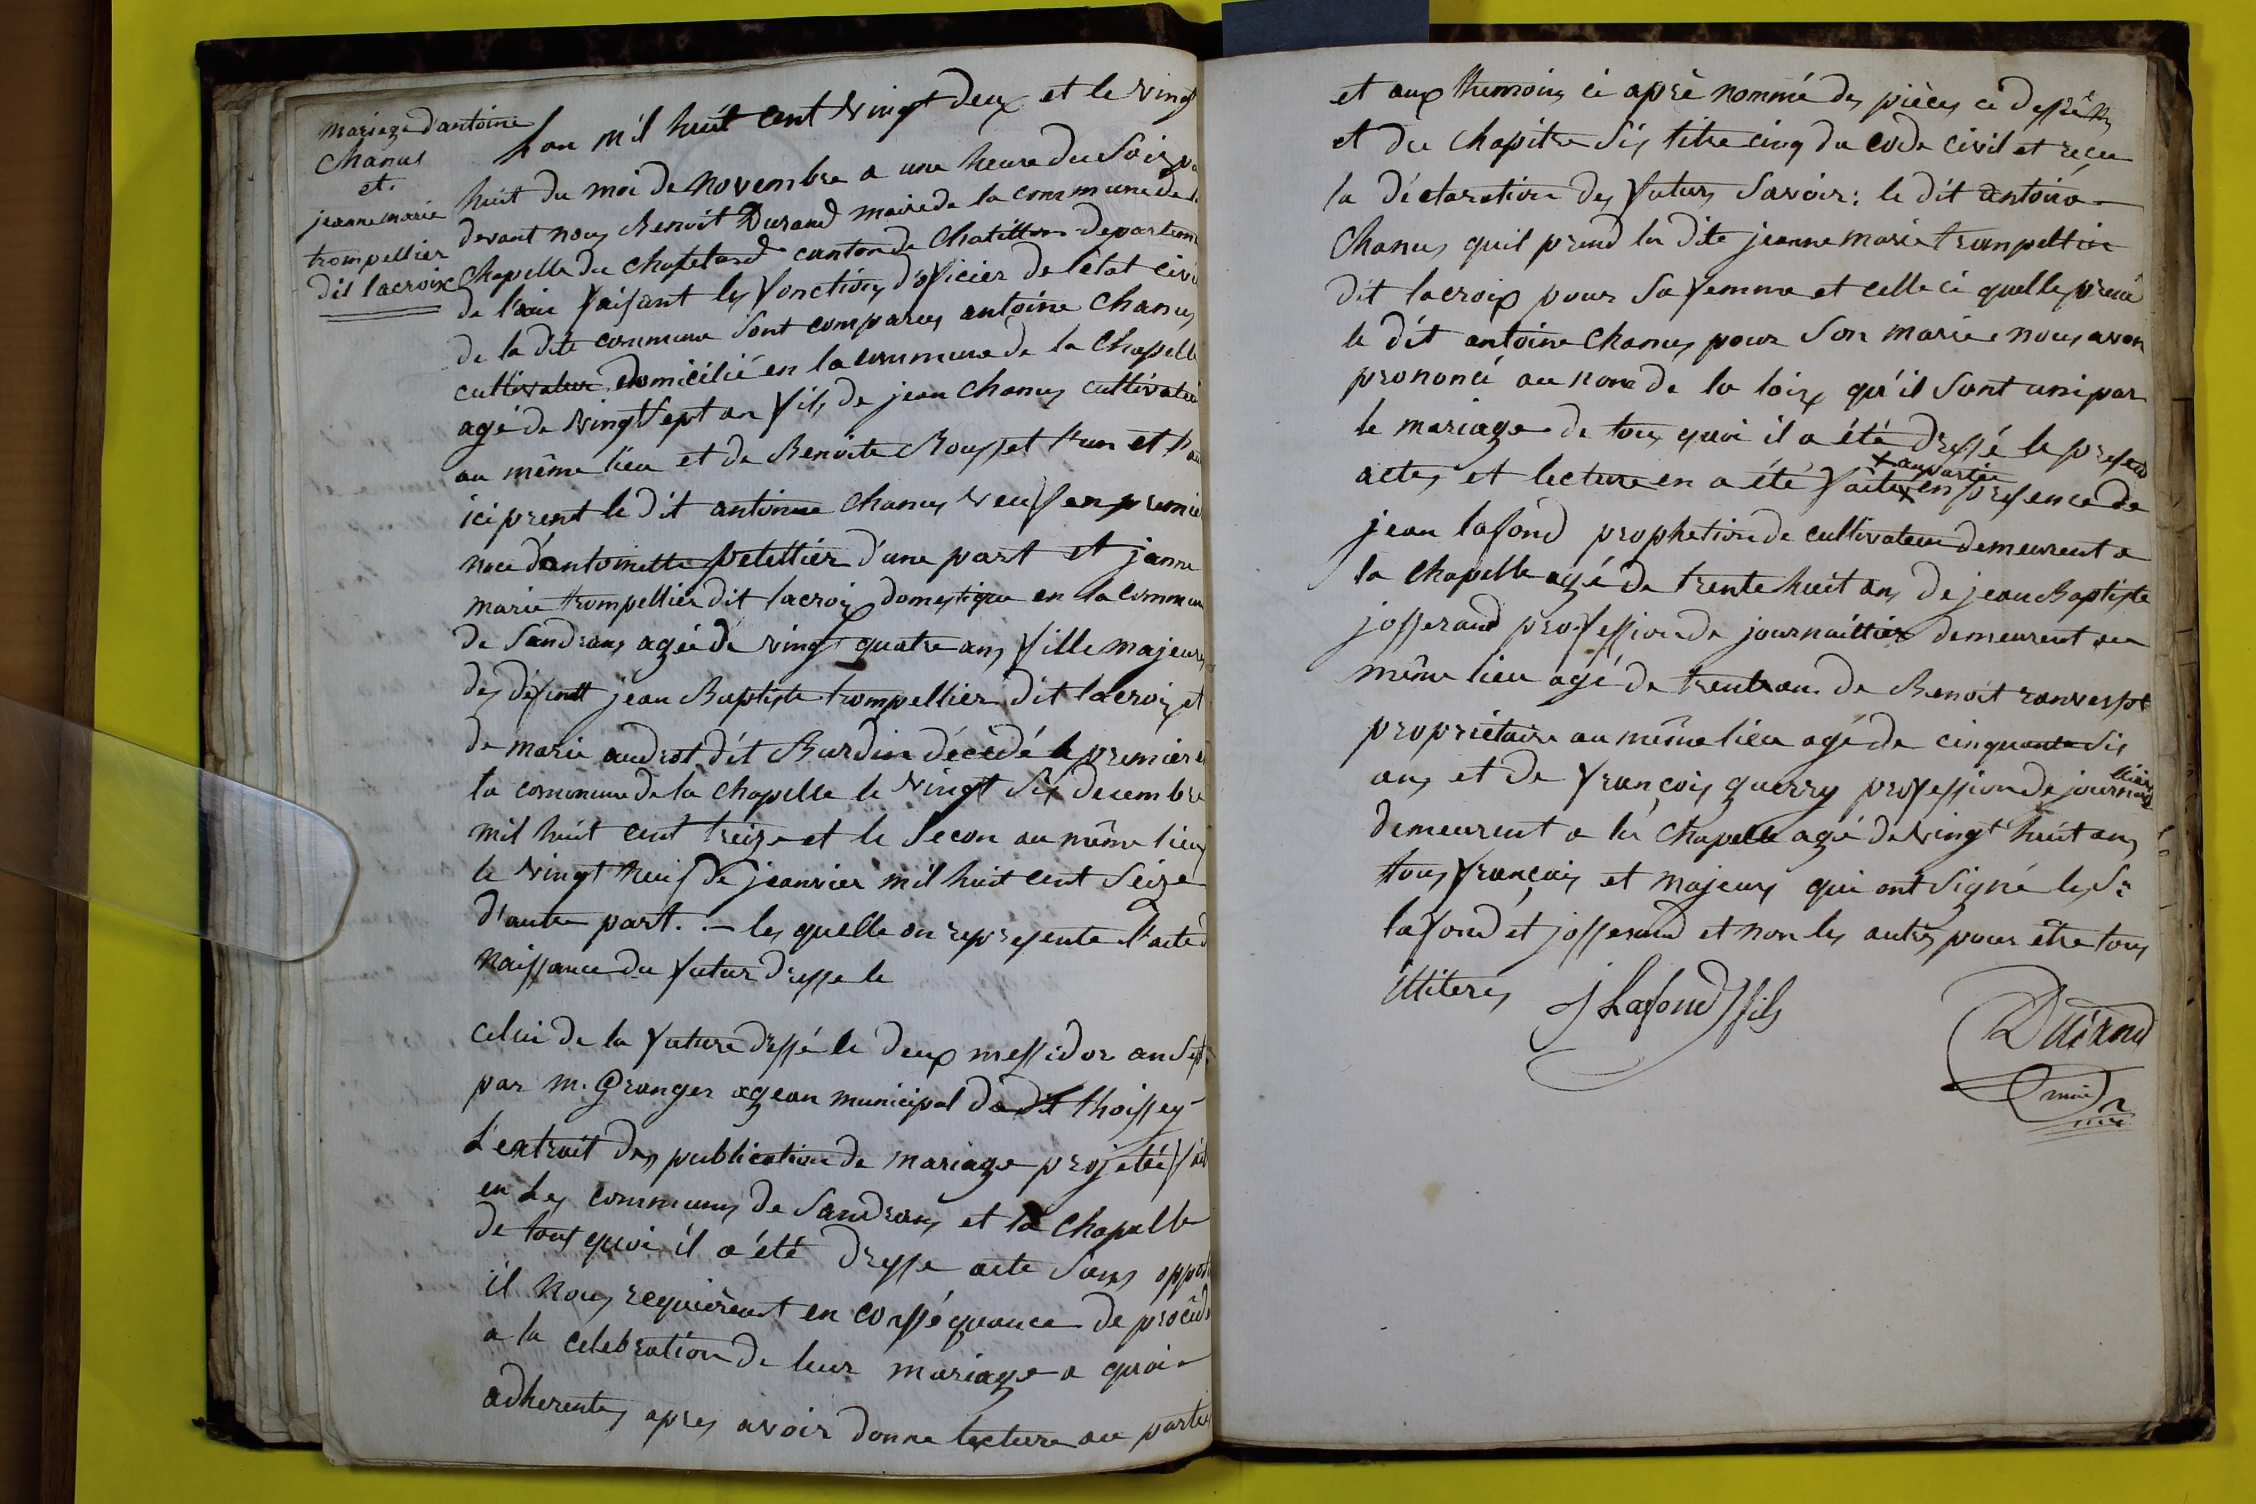 mariage d'antoine
Chanus
et.
jeanne marie
trompellier
dit lacroix
Lan mil huit cent vingt deux et le vingt
huit du moi de novembre a une heure du Soir pa
devant nous Benoit Durand maire de la commune de l
Chapelle du Chatelard canton de Chatillon Departem
de l'ain faisant les fonctions d'oficier de l'état civi
de la dite commune Sont comparus antoine Chanus
cultivateur domicilié en la commune de la Chapelle
agé de vingt Sept an fils de jean Chanus cultivateu
au même lieu et de Benoite Rousset l'un et l'au
ici prent le dit antoinne Chanus veuf en premie
noce d'antoinette peletiér d'une part et janne
marie trompellier dit lacroix domestique en la Commun
de Sandrans agée de vingt quatre ans fille majeure
des défint jean Baptiste trompellier dit lacroix et
de marie audrot dit Burdin décédé le premiere
la commune de la Chapelle le vingt Six decembre
mil huit cent treize et le Secon au même lieu
le vingt neuf de jeanvier mil huit cent Seize
d'autre part. - les quelle on represente l'acte d
Naissance du futur dresse le
celui de la future dressé le deux messidor an Sept
par m. Granger agean municipal de St thoissey
L'extrait des publication de mariage projetée fait
en Les communes de Sandrans et la Chapelle
de tout quoi il a été dresse acte Sans opposi
il nous requièrent en conséquance de procéde
a la celebration de leur mariage a quoi
adherentes apres avoir donne lecture au parties
et aux themoins ci aprè nommé des pièces ci desse
et du chapitre Six titre cinq du code civil et recu
la déclaration des futurs Savoir: le dit antoine
Chanus quil prend la dite jeanne marie trompellier
dit lacroix pour Sa femme et celle ci quelle prend
le dit antoine Chanus pour Son marie nous avon
prononcé au nom de la loix qu'il Sont uni par
le mariage de tous quoi il a été dressé le present
actes et lecture en a été faite en presence de
x au partie
jean lafond prophetion de cultivateur demeurent a
la chapelle agé de trente huit ans de jean Baptiste
josserand profession de journaillier demeurent au
même lieu agé de trent an de Benoit ranvesse
propriétaire au même lieu agé de cinquante Six
ans et de françois guerry profession de journaillier
demeurent a la Chapelle agé de vingt huit ans
tous français et majeurs qui ont Signé les Sr
lafond et josserand et non les autres pour être tous
illiterés
J Lafond fils
Durand
maire